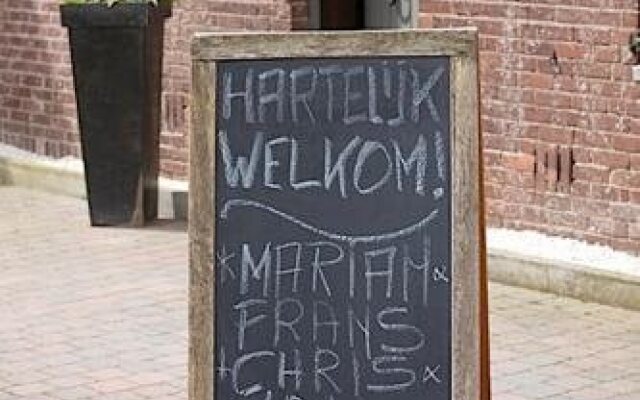 HARTELIJK
WELKOM!
* MARJAM &
FRANS
+ CHRIS x